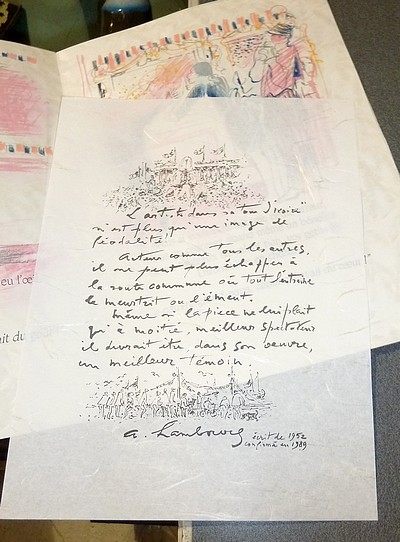 "L'artiste dans sa tour d'ivoire"
n'est plus qu'une image de
féodalité!
Acteur comme tous les autres,
il ne peut plus échapper à
la route commune où tout l'entraîne
le meurtrit ou l'émeut.
Même si la pièce ne lui plait
qu'à moitié, meilleur spectateur
il devrait être, dans son oeuvre,
un meilleur témoin.
a. Hambourg
écrit de 1952
confirmé en 1989
eu l'œ
ait du
du cœur!"